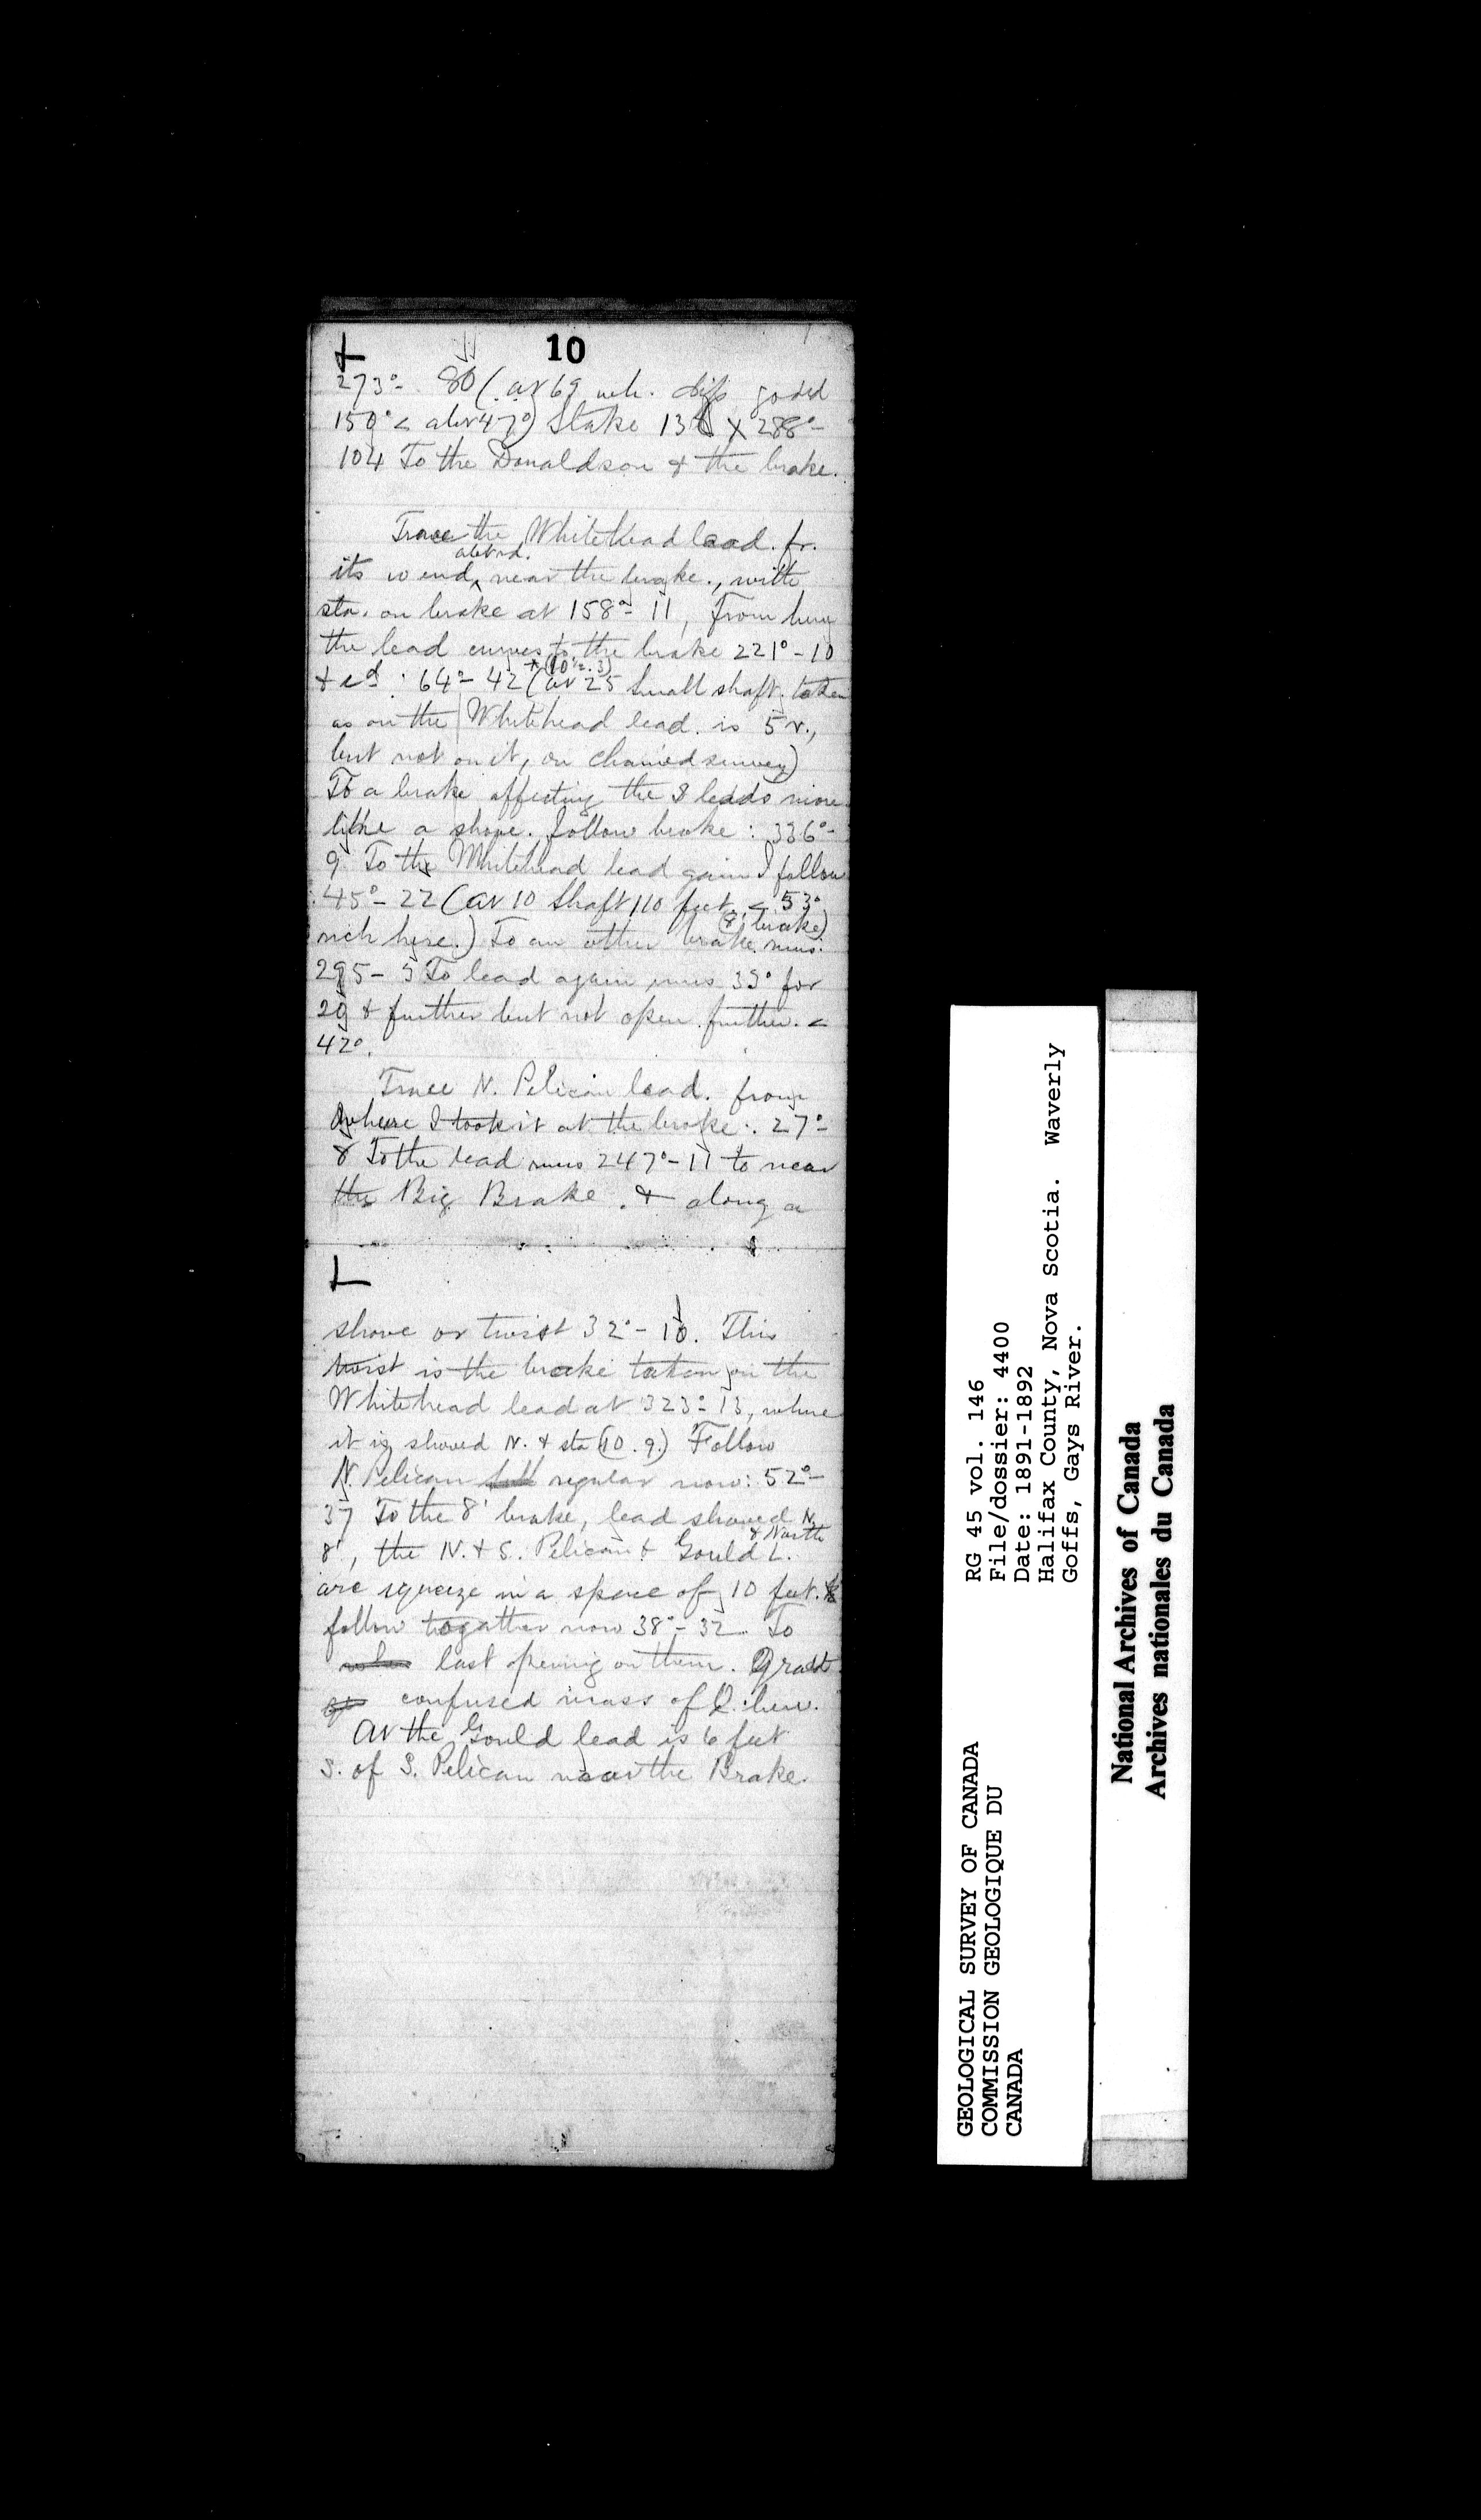 10
273°- 80 (at 69 wh. dips good
150° < abt 47°) Stake 13 X 288°-
104 To the Donaldson & the brake.
Trace the Whitehead lead. fr.
its w end, near the brake., with
sta. on brake at 158°- 11, From
the lead curves to the brake 221°-10
(10½.3)
64°- 42 (at 25 Small shaft. taken
as on the Whitehead lead. is 5 r.,
but not on it, on chained survey)
To a brake affecting the 8 leads more
like a shove. follow brake : 336°-
9 To the Whitehead lead gain I follow
45°- 22 (at 10 Shaft 110 feet. < 53°
rich here.) To an other brake runs:
(8' brake)
295- 5 To lead again runs 33° for
20 & further but not open further. <
42°.
Trace N. Pelican lead. from
where I took it at the brake: 27°-
8 To the lead runs 247°-11 to near
the Big Brake. & along a
shove or twist 32°- 10. This
twist is the brake taken on the
Whitehead lead at 323°- 13, where
it is shoved N. & sta (10.9.) Follow
N. Pelican regular now: 52°-
37 To the 8' brake, lead shoved N.
& North
8', the N. & S. Pelican & Gould L.
are squeeze in a space of 10 feet. &
follow togather now 38°- 32 To
last opening on them. Great
confused mass of Q. here.
At the Gould lead is 6 feet
S. of S. Pelican near the Brake.
GEOLOGICAL SURVEY OF CANADA
COMMISSION GEOLOGIQUE DU
CANADA
RG 45 vol. 146
File/dossier: 4400
Date: 1891-1892
Halifax County, Nova Scotia. Waverly
Goffs, Gays River.
National Archives of Canada
Archives nationales du Canada